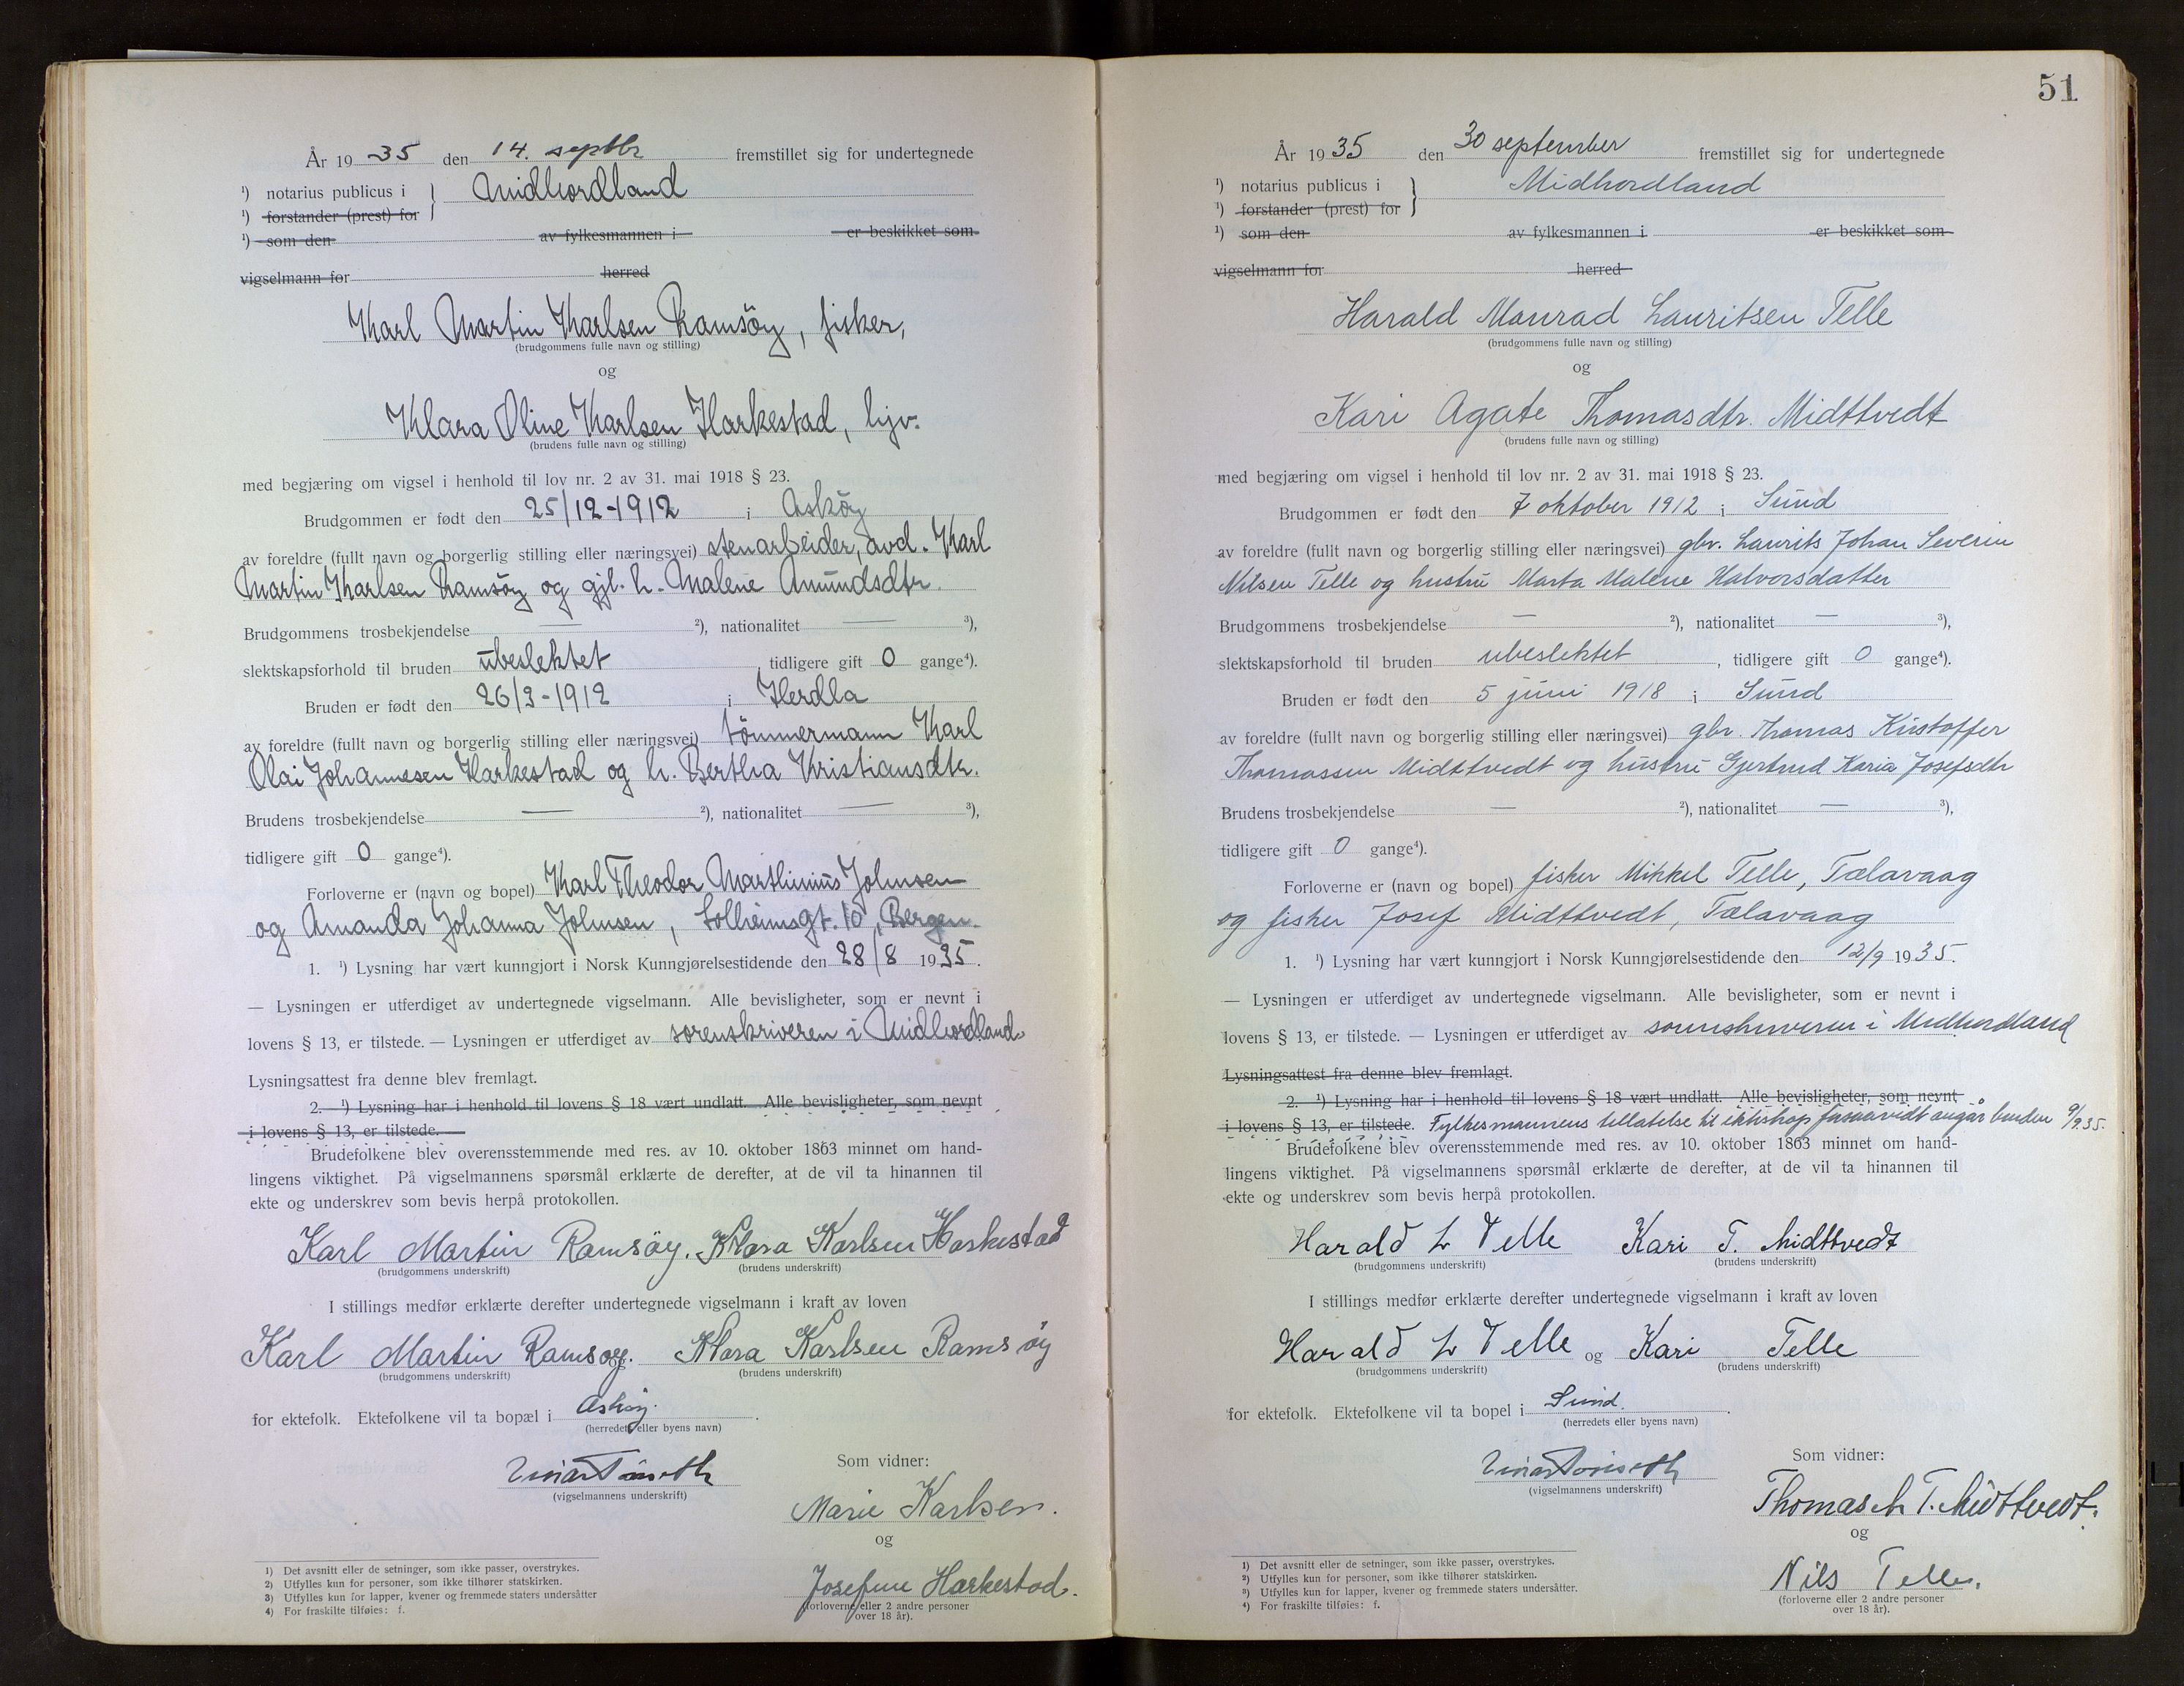 År 19 35 den 14. septbr fremstillet sig for undertegnede
¹) notarius publicus i } Midhordland
¹) forstander (prest) for
¹) som den av fylkesmannen i er beskikket som
vigselmann for herred
Karl Martin Karlsen Ramsöy, fisker,
(brudgommens fulle navn og stilling)
og
Klara Oline Karlsen Harkestad, hjv.
(brudens fulle navn og stilling)
med begjæring om vigsel i henhold til lov nr. 2 av 31. mai 1918 § 23.
Brudgommen er født den 25/12-1912 i Asköy
av foreldre (fullt navn og borgerlig stilling eller næringsvei) stenarbeider, avd. Karl
Martin Karlsen Ramsöy og gjl. h. Malene Amundsdtr.
Brudgommens trosbekjendelse — ²), nationalitet — ³),
slektskapsforhold til bruden ubeslektet, tidligere gift 0 gange⁴).
Bruden er født den 26/3-1912 i Herdla
av foreldre (fullt navn og borgerlig stilling eller næringsvei) tömmermann Karl
Olai Johannesen Harkestad og h. Bertha Kristiansdtr.
Brudens trosbekjendelse — ²), nationalitet — ³),
tidligere gift 0 gange⁴).
Forloverne er (navn og bopel) Karl Theodor Marthinius Johnsen
og Amanda Johanna Johnsen, Solheimsgt. 10, Bergen.
1. ¹) Lysning har vært kunngjort i Norsk Kunngjørelsestidende den 28/8 1935.
— Lysningen er utferdiget av undertegnede vigselmann. Alle bevisligheter, som er nevnt i
lovens § 13, er tilstede. — Lysningen er utferdiget av sorenskriveren i Midhordland.
Lysningsattest fra denne blev fremlagt.
2. ¹) Lysning har i henhold til lovens § 18 vært undlatt. Alle bevisligheter, som nevnt
i lovens § 13, er tilstede.
Brudefolkene blev overensstemmende med res. av 10. oktober 1863 minnet om hand-
lingens viktighet. På vigselmannens spørsmål erklærte de derefter, at de vil ta hinannen til
ekte og underskrev som bevis herpå protokollen.
Karl Martin Ramsöy. Klara Karlsen Harkestad
(brudgommens underskrift) (brudens underskrift)
I stillings medfør erklærte derefter undertegnede vigselmann i kraft av loven
Karl Martin Ramsöy. og Klara Karlsen Ramsöy
(brudgommens underskrift) (brudens underskrift)
for ektefolk. Ektefolkene vil ta bopæl i Asköy.
(herredets eller byens navn)
(vigselmannens underskrift)
Som vidner:
Marie Karlsen.
og
Josefine Harkestad.
(forloverne eller 2 andre personer
over 18 år).
1) Det avsnitt eller de setninger, som ikke passer, overstrykes.
2) Utfylles kun for personer, som ikke tilhører statskirken.
3) Utfylles kun for lapper, kvener og fremmede staters undersåtter
4) For fraskilte tilføies: f.
51
År 19 35 den 30 september fremstillet sig for undertegnede
¹) notarius publicus i } Midhordland
¹) forstander (prest) for
¹) som den av fylkesmannen i er beskikket som
vigselmann for herred
Harald Monrad Lauritsen Telle
(brudgommens fulle navn og stilling)
og
Kari Agate Thomasdtr. Midttvedt
(brudens fulle navn og stilling)
med begjæring om vigsel i henhold til lov nr. 2 av 31. mai 1918 § 23.
Brudgommen er født den 7 oktober 1912 i Sund
av foreldre (fullt navn og borgerlig stilling eller næringsvei) gbr. Laurits Johan Severin
Nilsen Telle og hustru Marta Malene Halvorsdatter
Brudgommens trosbekjendelse — ²), nationalitet — ³),
slektskapsforhold til bruden ubeslektet, tidligere gift 0 gange⁴).
Bruden er født den 5 juni 1918 i Sund
av foreldre (fullt navn og borgerlig stilling eller næringsvei) gbr. Thomas Kristoffer
Thomassen Midttvedt og hustru Gjertrud Karia Josefsdtr
Brudens trosbekjendelse — ²), nationalitet — ³),
tidligere gift 0 gange⁴).
Forloverne er (navn og bopel) fisker Mikkel Telle, Tælavaag
og fisker Josef Midttvedt, Tælavaag
1. ¹) Lysning har vært kunngjort i Norsk Kunngjørelsestidende den 12/9 1935.
— Lysningen er utferdiget av undertegnede vigselmann. Alle bevisligheter, som er nevnt i
lovens § 13, er tilstede. — Lysningen er utferdiget av sorenskriveren i Midhordland
Lysningsattest fra denne blev fremlagt.
2. ¹) Lysning har i henhold til lovens § 18 vært undlatt. Alle bevisligheter, som nevnt
i lovens § 13, er tilstede. Fylkesmannens tillatelse til ekteskap forsåvidt angår bruden 9/9.35.
Brudefolkene blev overensstemmende med res. av 10. oktober 1863 minnet om hand-
lingens viktighet. På vigselmannens spørsmål erklærte de derefter, at de vil ta hinannen til
ekte og underskrev som bevis herpå protokollen.
Harald L Telle Kari T. Midttvedt
(brudgommens underskrift) (brudens underskrift)
I stillings medfør erklærte derefter undertegnede vigselmann i kraft av loven
Harald L Telle og Kari Telle
(brudgommens underskrift) (brudens underskrift)
for ektefolk. Ektefolkene vil ta bopel i Sund.
(herredets eller byens navn)
(vigselmannens underskrift)
Som vidner:
Thomas T. Midttvedt.
og
Nils Telle.
(forloverne eller 2 andre personer
over 18 år).
1) Det avsnitt eller de setninger, som ikke passer, overstrykes.
2) Utfylles kun for personer, som ikke tilhører statskirken.
3) Utfylles kun for lapper, kvener og fremmede staters undersåtter.
4) For fraskilte tilføies: f.